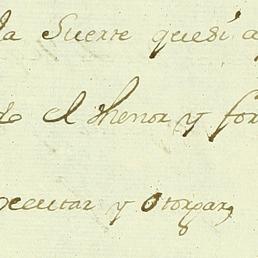 la Suerte quedi a
do el thenor y for
xecutar y otorgar,